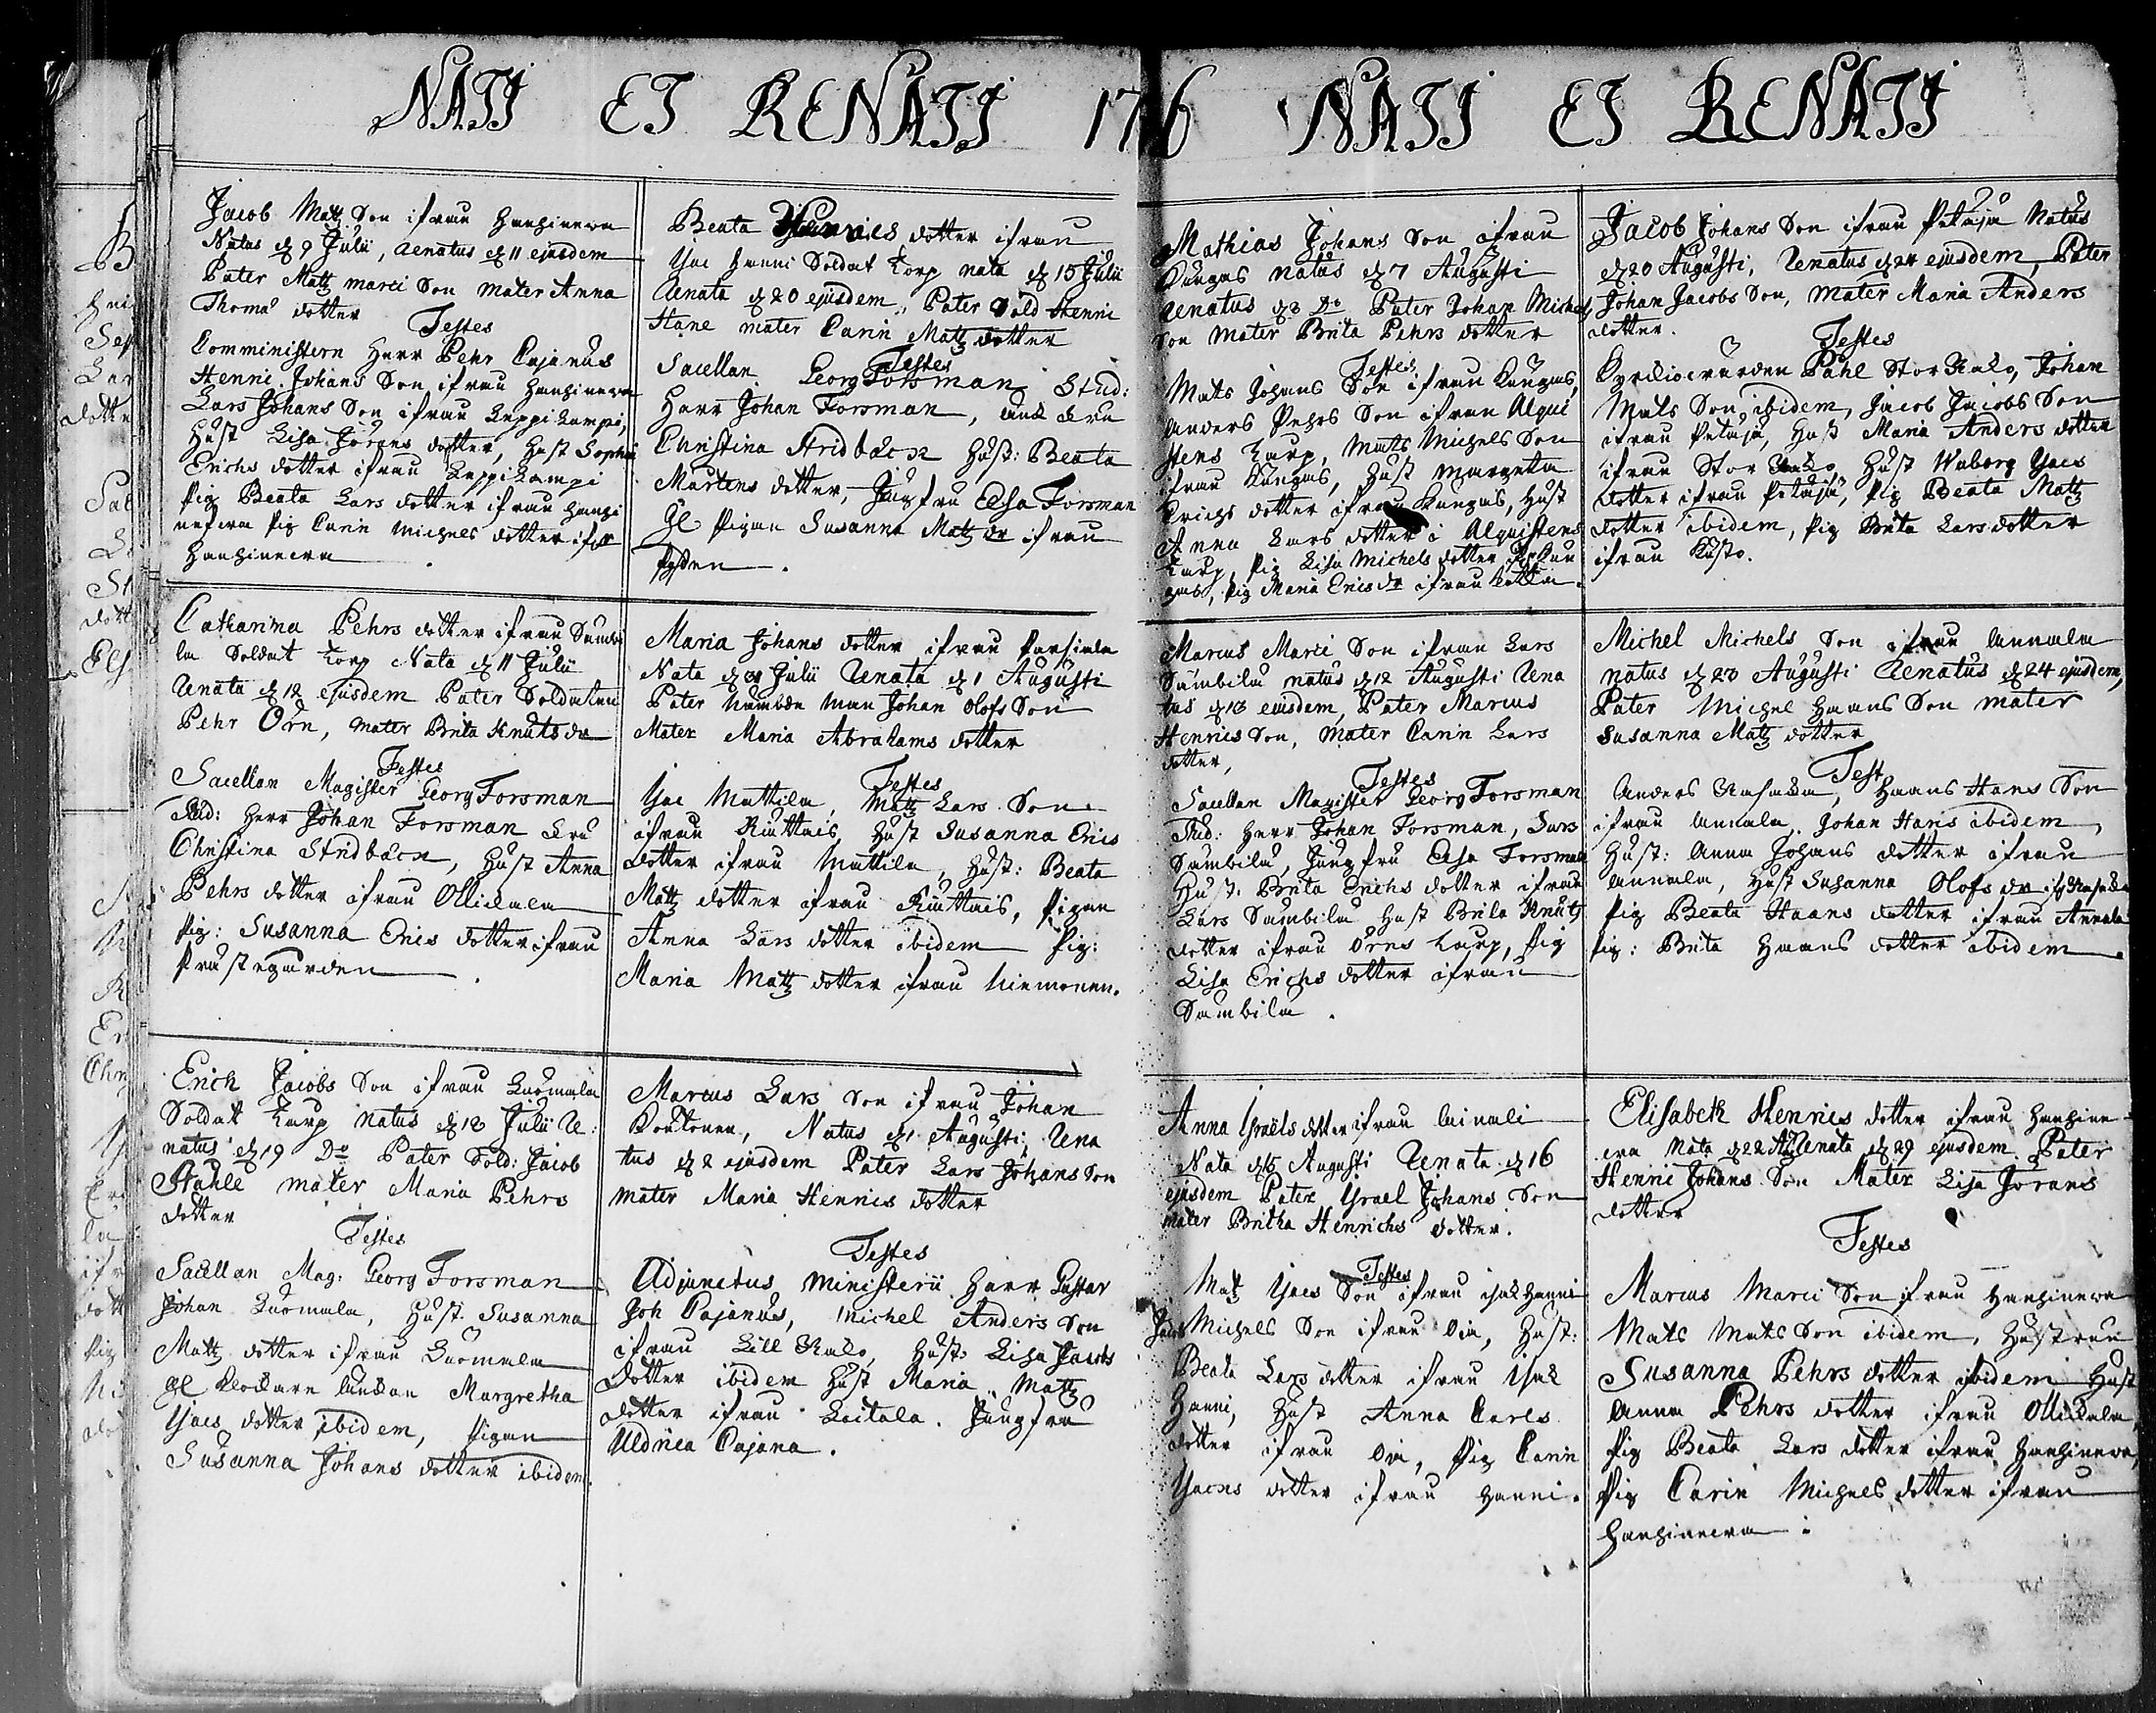 NATI ET RENATI 17 6 NATI ET RENATI
Jacob Matz Son ifrån Hanhinewa
Natus d 9 Julii, Renatus d 11 ejusdem
Pater Matz Marci Son Mater Anna
Thomæ dotter
Testes
Comministern Herr Pehr Cajanus
Henric Johans Son ifrån Hanhinewa
Lars Johans Son ifrån Leppilampi,
Hust Lisa Jörans dotter, Hust Sophia
Erichs dotter ifrån Leppilampi
Pig Beata Lars dotter ifrån Hanhi
newa Pig Carin Michels dotter ifr
Hanhinewa
Catharina Pehrs dotter ifrån
la Soldat Torp Nata d 11 Julii
Renata d 12 ejusdem Pater Soldaten
Pehr Örn, Mater Brita Knuts dr
Testes
Sacellan Magister Georg Forsman
Stud: Herr Johan Forsman Fru
Christina Stridbäck, Hust Anna
Pehrs dotter ifrån Ollikala
Pig: Susanna Erics dotter ifrån
Prästegården
Erich Jacobs Son ifrån Luomala
Soldat Torp Natus d 18 Julii Re:
natus d 19 Do Pater Sold: Jacob
Ståhle Mater Maria Pehrs
dotter
Testes
Sacellan Mag: Georg Forsman
Johan Luomala, Hust. Susanna
Matz dotter ifrån Luomala
gl Klockare Enckan Margretha
Isacs dotter ibidem, Pigan
Susanna Johans dotter ibidem.
Beata Henrics dotter ifrån
Isac Hanni Soldat Torp nata d 15 Julii
Renata d 20 ejusdem, Pater Sold Henric
Hane mater Carin Matz dotter
Testes
Sacellan Georg Forsman, Stud:
Herr Johan Forsman, Fru
Christina Stridbäck Hust: Beata
Mårtens dotter, Jungfru Elsa Forsman
Pigan Susanna Matz dr ifrån
Maria Johans dotter ifrån Passiala
Nata d Julii Renata d 1 Augusti
Pater Nämbde Man Johan Olofs Son
Mater Maria Abrahams dotter
Testes
Isac Mattila, Matz Lars Son
ifrån Riuttais, Hust Susanna Erics
dotter ifrån Mattila, Hust: Beata
Matz dotter ifrån Riuttais, Pigan
Anna Lars dotter ibidem Pig:
Maria Matz dotter ifrån Niemonen.
Marcus Lars Son ifrån Johan
Kontonen, Natus d 1 Augusti, Rena
tus d 2 ejusdem Pater Lars Johans Son
mater Maria Henrics dotter
Testes
Adjunctus Ministerii Herr Gustav
Joh Cajanus, Michel Anders Son
ifrån Lill Kalo, Hust: Lisa Jacobs
dotter ibidem Hust Maria Matz
dotter ifrån Laitala. Jungfru
Uldrica Cajana.
Mathias Johans Son ifrån
Kangas natus d 7 Augusti
Renatus d 8 Do Pater Johan Michels
Son Mater Brita Pehrs dotter
Testes
Mats Johans Son ifrån Kangas,
Anders Pehrs Son ifrån Alqui
stens Torp, Matts Michels Son
ifrån Kangas, Hust Margeta
Erichs dotter ifrån Kangas, Hust
Anna Lars dotter i Alquistens
Torp, Pig Lisa Michels dotter Kan
gas, Pig Maria Erics dr ifrån
Marcus Marci Son ifrån Lars
Sämbilä natus d 12 Augusti Rena
tus d 13 ejusdem, Pater Marcus
Henrics Son, Mater Carin Lars
dotter,
Testes
Sacellan Magister Georg Forsman
Stud: Herr Johan Forsman, Lars
Sämbilä, Jungfru Elsa Forsman
Hust. Brita Erichs dotter ifrån
Lars Sämbilä Hust Brita Knutz
dotter ifrån Örns Torp, Pig
Lisa Erichs dotter ifrån
Sämbilä.
Anna Israels dotter ifrån Ainali
Nata d 15 Augusti Renata d 16
ejusdem Pater Israel Johans Son
mater Britha Henrichs dotter.
Testes
Matz Isacs Son ifrån Isak Hanni
Jacob Michels Son ifrån Oia, Hust:
Beata Lars dotter ifrån Isak
Hanni, Hust Anna Carls
dotter ifrån Oia, Pig Carin
Isacks dotter ifrån Hanni.
Jacob Johans Son ifrån Petäjä Natus
d 20 Augusti, Renatus d 24 ejusdem, Pater
Johan Jacobs Son, Mater Maria Anders
dotter.
Testes
Kyrckiovärden Påhl Stor Kalo, Johan
Mats Son, ibidem, Jacob Jacobs Son
ifrån Petäjä, Hust Maria Anders dotter
ifrån Stor Kalo, Hust Waborg Isacs
dotter ifrån Petäjä, Pig Beata Matz
dotter ibidem, Pig Brita Lars dotter
ifrån
Michel Michels Son ifrån Annala
natus d 23 Augusti Renatus d 24 ejusdem,
Pater Michel Haans Son mater
Susanna Matz dotter
Test
Anders Haans Hans Son
ifrån Annala. Johan Hans ibidem,
Hust: Anna Johans dotter ifrån
Annala, Hust Susanna Olofs dr
Pig Beata Haans dotter ifrån Annala
Pig: Brita Haans dotter ibidem.
Elisabeth Henrics dotter ifrån Hanhine
wa Nata d 22 Aug Renata d 29 ejusdem. Pater
Henric Johans Son Mater Lisa Jörans
dotter
Testes
Marcus Marci Son ifrån Hanhinewa
Mats Mats Son ibidem, Hustrun
Susanna Pehrs dotter ibidem Hust
Anna Pehrs dotter ifrån Ollikala,
Pig Beata Lars dotter ifrån Hanhinewa,
Pig Carin Michels dotter ifrån
Hanhinewa